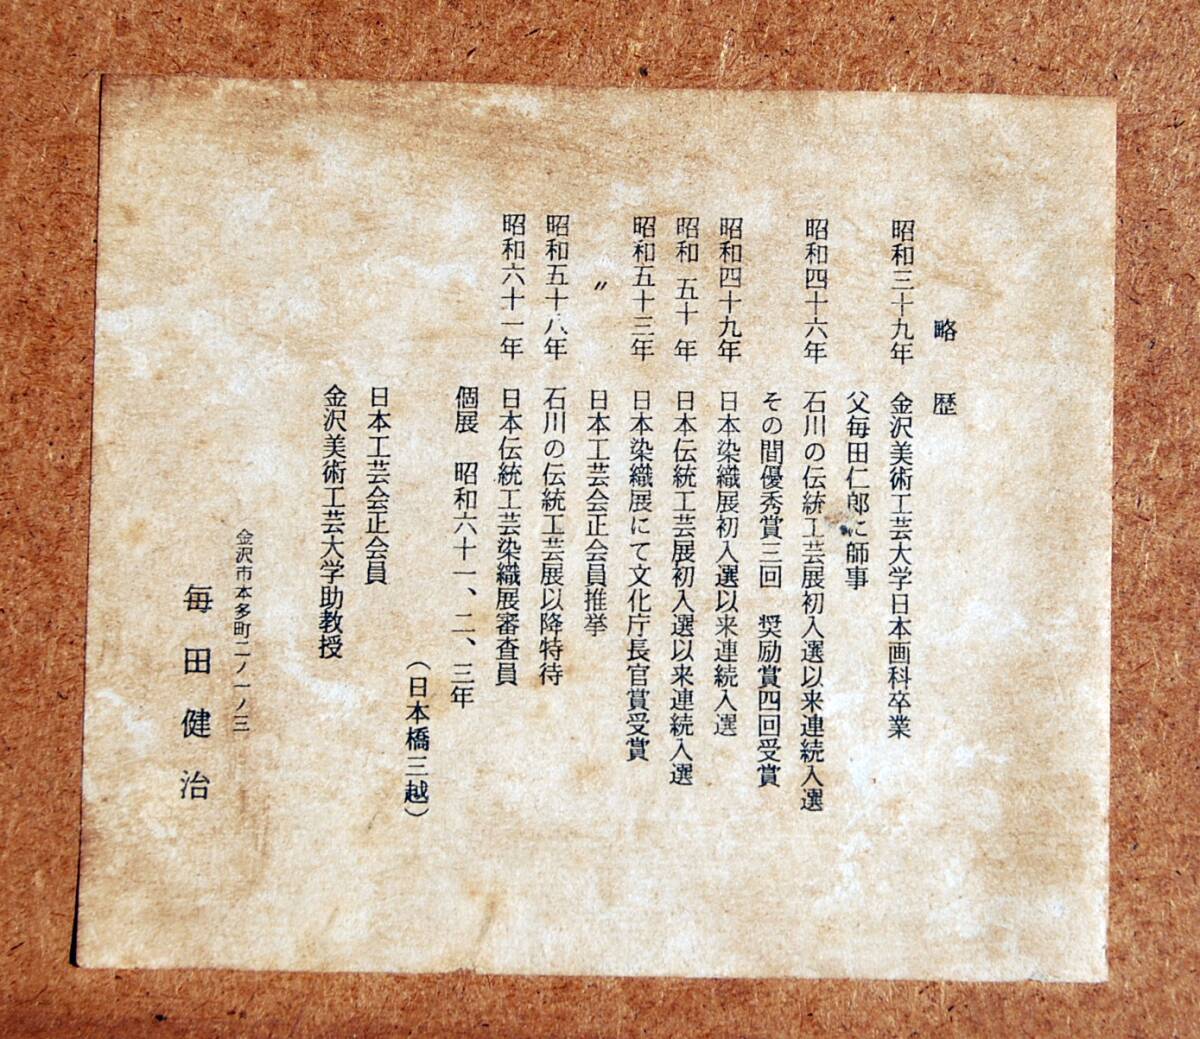 略歴
昭和三十九年 金沢美術工芸大学日本画科卒業
父毎田仁郎に師事
昭和四十六年 石川の伝統工芸展初入選以来連続入選
その間優秀賞三回 奨励賞四回受賞
昭和四十九年 日本染織展初入選以来連続入選
昭和 五十 年 日本伝統工芸展初入選以来連続入選
昭和五十三年 日本染織展にて文化庁長官賞受賞
〃 日本工芸会正会員推挙
昭和五十八年 石川の伝統工芸展以降特待
昭和六十一年 日本伝統工芸染織展審査員
個展 昭和六十一、二、三年
(日本橋三越)
日本工芸会正会員
金沢美術工芸大学助教授
金沢市本多町二ノ一ノ三
毎田健治